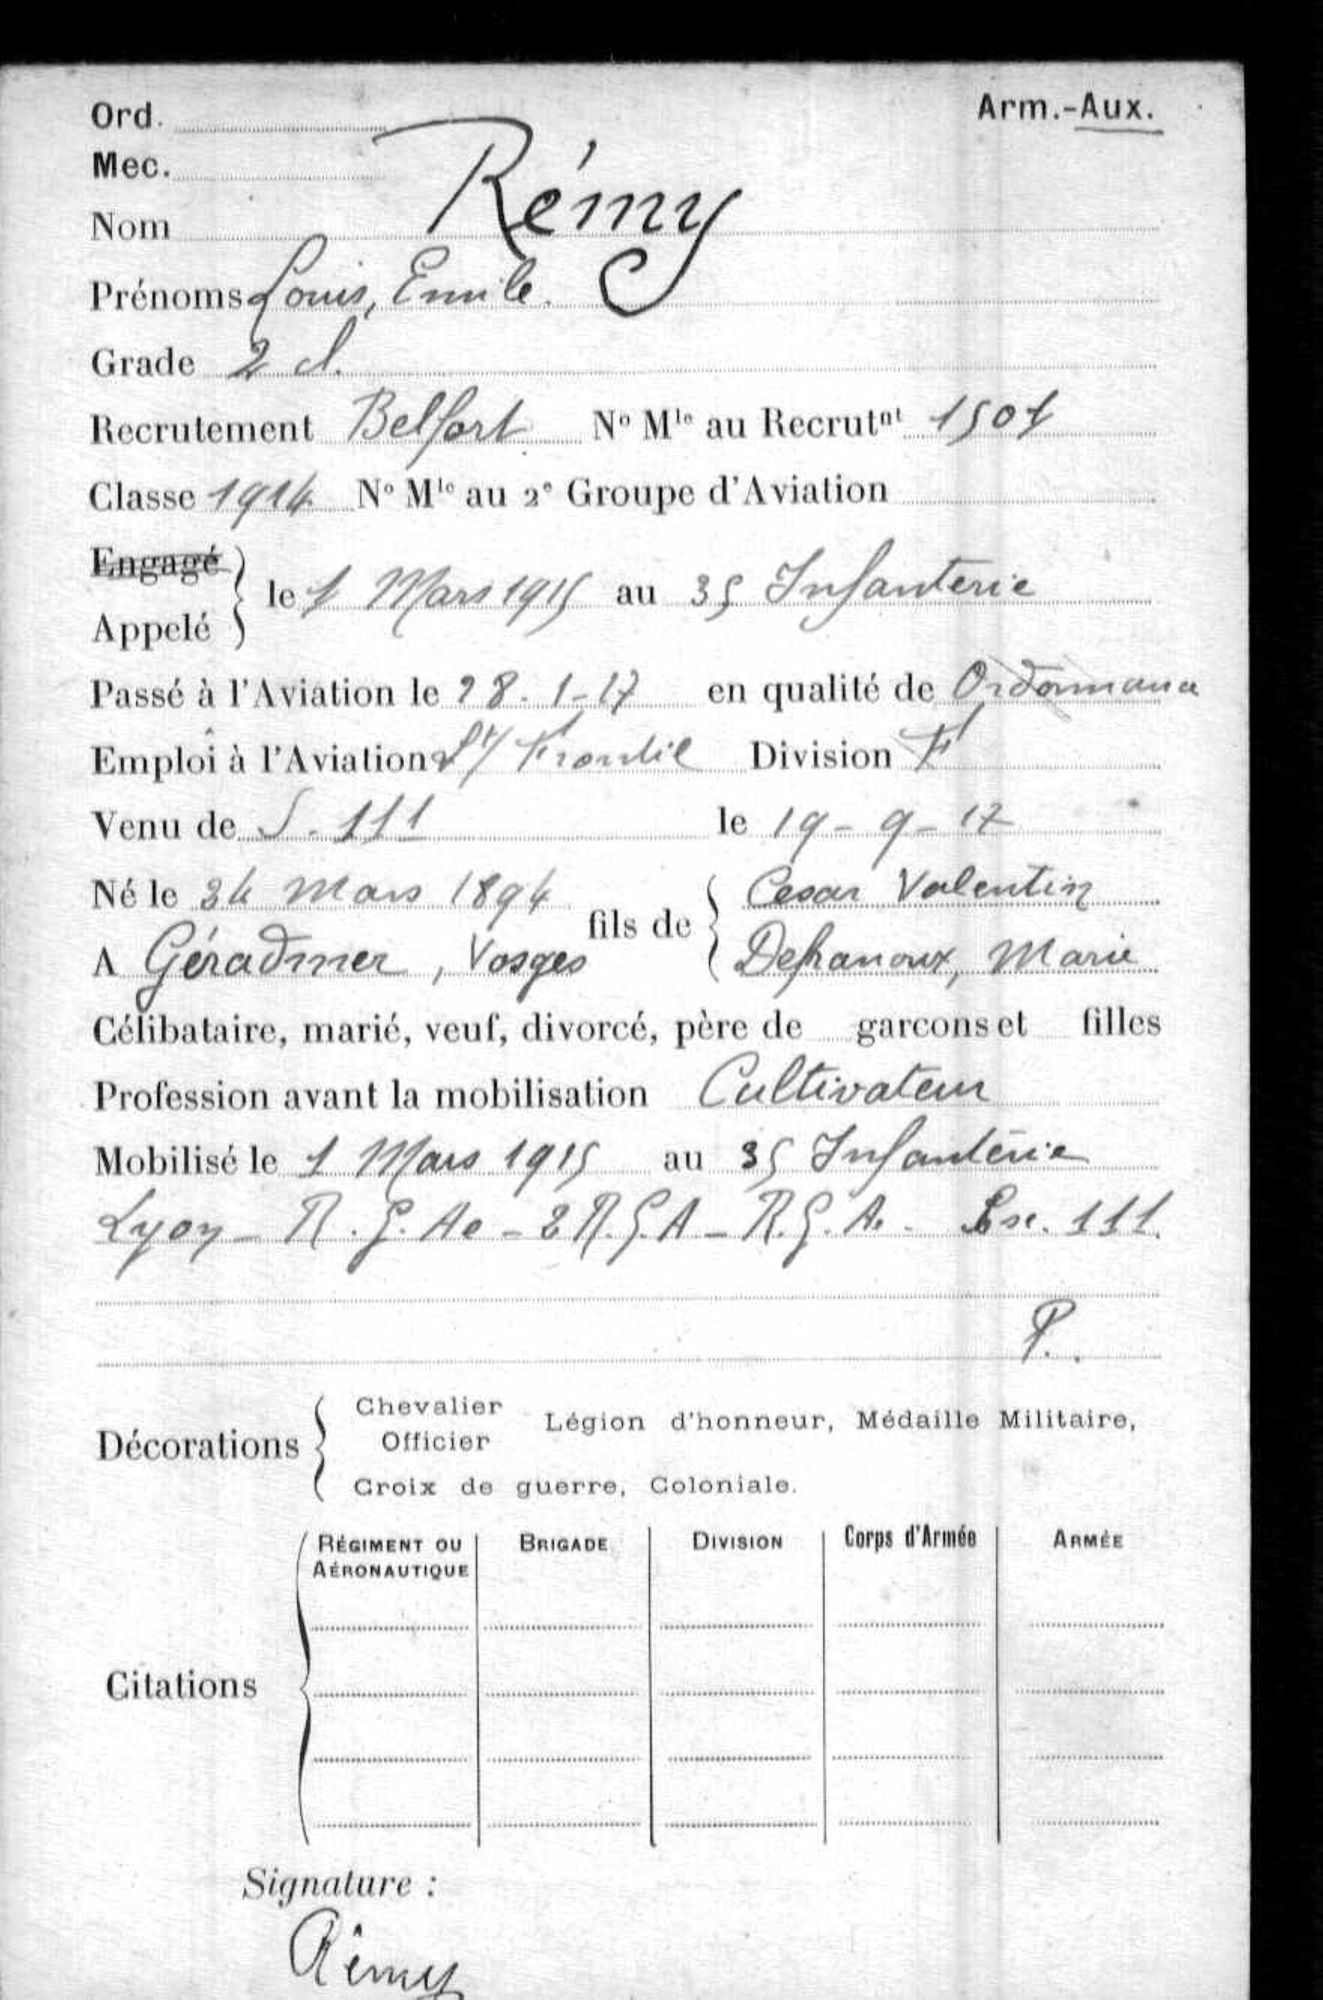 Ord. Arm.-Aux.
Mec.
Nom Rémy
Prénoms Louis, Emile.
Grade 2 cl.
Recrutement Belfort N° Mle au Recrutnt 1501
Classe 1914 N° Mle au 2e Groupe d'Aviation
Engagé
Appelé
le 1 Mars 1915 au 35 Infanterie
Passé à l'Aviation le 28-1-17 en qualité de
Emploi à l'Aviation Division
Venu de S. 111 le 19-9-17
Né le 24 Mars 1894 fils de Cesar Valentin
A Géradmer, Vosges Defranoux, Marie
Célibataire, marié, veuf, divorcé, père de garçons et filles
Profession avant la mobilisation Cultivateur
Mobilisé le 1 Mars 1915 au 35 Infanterie
Lyon - R.G.Ae - 2 R.G.A - R.G.A. Esc. 111.
P.
Décorations
Chevalier
Officier
Légion d'honneur, Médaille Militaire,
Croix de guerre, Coloniale.
Citations
RÉGIMENT OU AÉRONAUTIQUE BRIGADE DIVISION Corps d'Armée ARMÉE
Signature :
Rémy